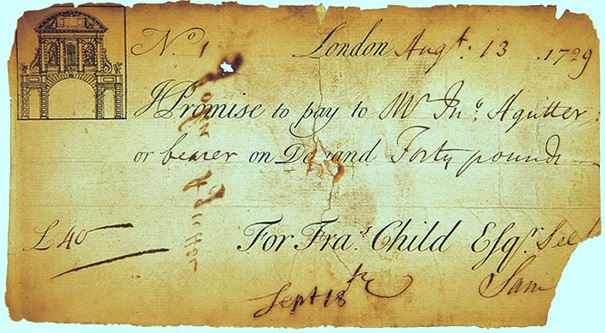 No 1 London Augt. 13 . 1729
I Promise to pay to Mr Jno. Agutter
or bearer on Demand Forty pounds
£ 40 For Fra.s Child Esqr. Self
Sam
Sept 18th